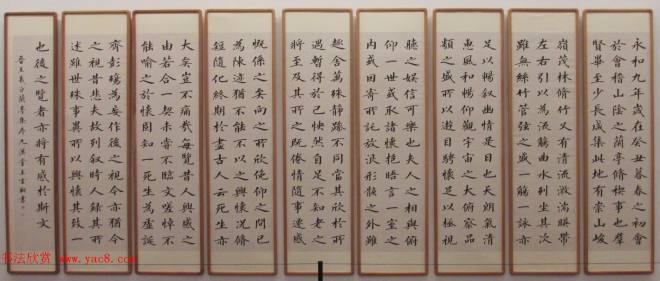 永和九年歲在癸丑暮春之初會
於會稽山陰之蘭亭脩稧事也羣
賢畢至少長咸集此地有崇山峻
嶺茂林脩竹又有清流激湍暎帶
左右引以為流觴曲水列坐其次
雖無絲竹管弦之盛一觴一詠亦
足以暢叙幽情是日也天朗氣清
惠風和暢仰觀宇宙之大俯察品
類之盛所以遊目騁懷足以極視
聽之娛信可樂也夫人之相與俯
仰一世或取諸懷抱晤言一室之
內或因寄所託放浪形骸之外雖
趣舍萬殊靜躁不同當其欣於所
遇暫得於己怏然自足不知老之
將至及其所之既倦情隨事遷感
慨係之矣向之所欣俛仰之間已
為陳迹猶不能不以之興懷況脩
短隨化終期於盡古人云死生亦
大矣豈不痛哉每覽昔人興感之
由若合一契未嘗不臨文嗟悼不
能喻之於懷固知一死生為虛誕
齊彭殤為妄作後之視今亦猶今
之視昔悲夫故列叙時人錄其所
述雖世殊事異所以興懷其致一
也後之覽者亦將有感於斯文
晉王羲之蘭亭集序
书法欣赏 www.yac8.com